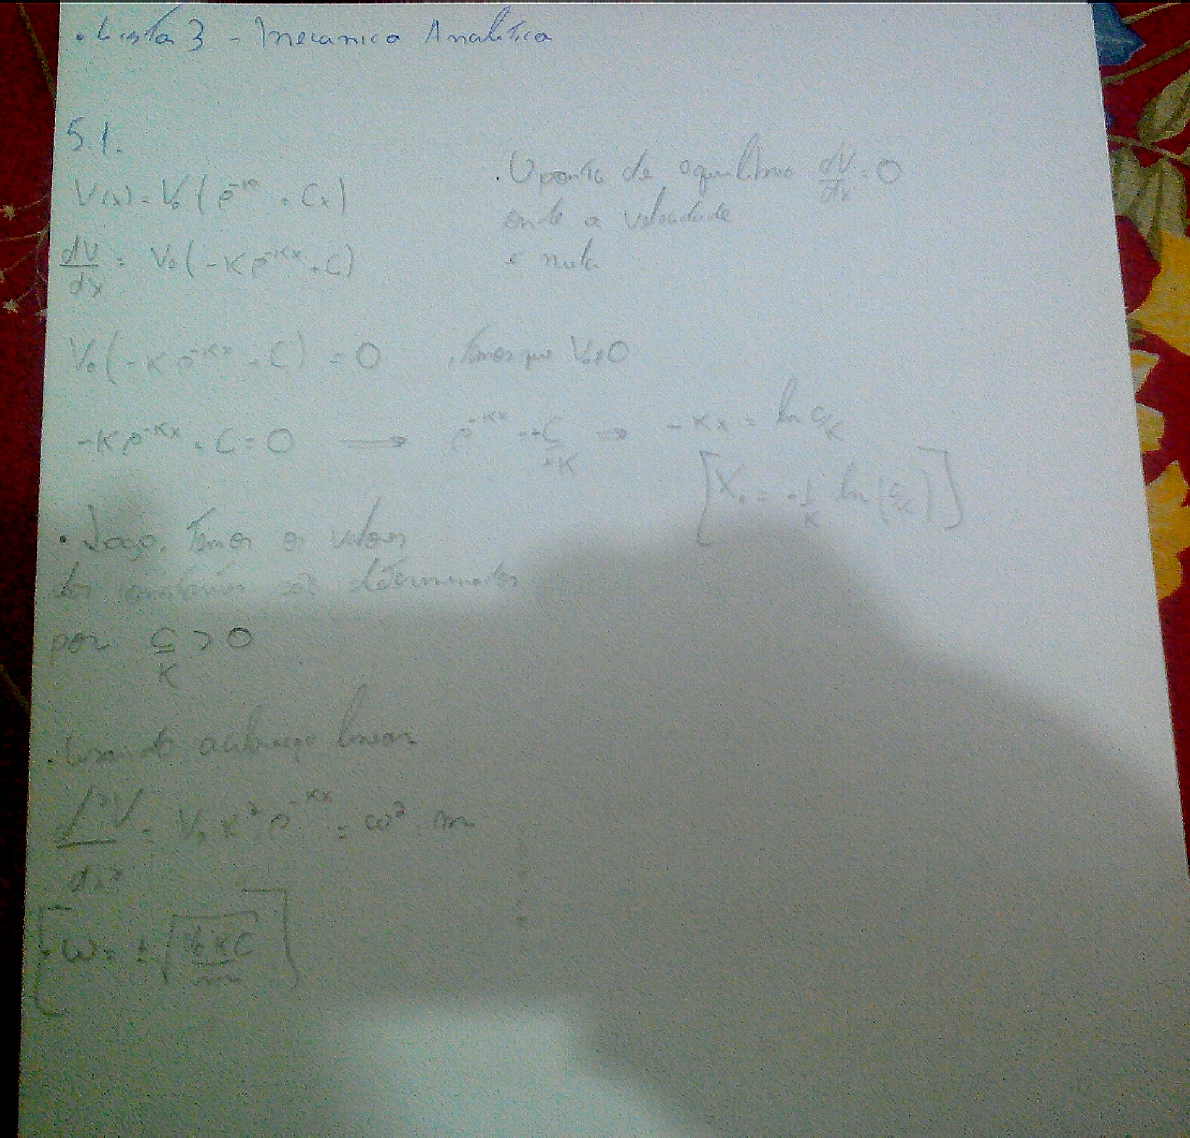 . Lista 3 - Mecanica Analitica
5.1.
V(x) = V₀ ( e^-kx + Cx )
dV/dx = V₀ ( -K e^-Kx + C )
. O ponto de equilibrio dV/dx = 0
onde a velocidade
e nula
V₀ ( -K e^-Kx + C ) = 0 . Temos que V₀ ≠ 0
-K e^-Kx + C = 0 → e^-Kx = +C/+K ⇒ -Kx = ln C/K
[ X₀ = -1/K ln ( C/K ) ]
. Logo, Temos os valores
das constantes são determinados
por C/K > 0
. Usando a
linear
d²V/dx² = V₀ K² e^-Kx = ω² . m
[ ω = ± √V₀KC/m ]